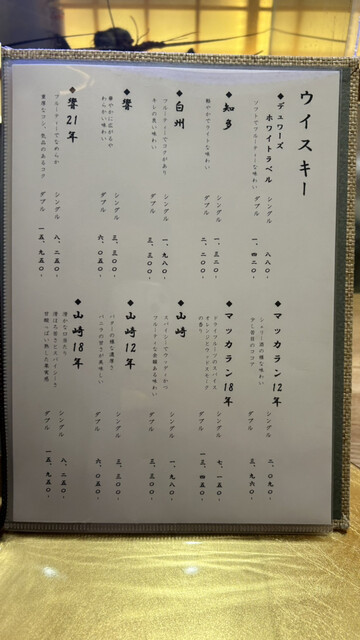 ウイスキー
◆デュワーズ
ホワイトラベル
ソフトでフルーティーな味わい
シングル 八八〇-
ダブル 一、四二〇-
◆知多
軽やかでライトな味わい
シングル 一、三二〇-
ダブル 二、二〇〇-
◆白州
フルーティーでコクがあり
キレの良い味わい
シングル 一、九八〇-
ダブル 三、三〇〇-
◆響
華やかに広がるや
わらかい味わい
シングル 三、三〇〇-
ダブル 六、〇五〇-
◆響21年
フルーティーでなめらか
重厚なコシ、気品のあるコク
シングル 八、二五〇-
ダブル 一五、九五〇-
◆マッカラン12年
シェリー酒の様な味わい
少し苦目のココア
シングル 二、〇九〇-
ダブル 三、九六〇-
◆マッカラン18年
ドライフルーツのスパイス
オレンジとウッドスモーク
の香り
シングル 七、一五〇-
ダブル 一三、四五〇-
◆山崎
スパイシーでウッディかつ
フルーティな余韻ある味わい
シングル 一、九八〇-
ダブル 三、三〇〇-
◆山崎12年
バターの様な濃厚さ、
バニラの甘さが美味しい
シングル 三、三〇〇-
ダブル 六、〇五〇-
◆山崎18年
滑かな口当たり
僅ほろ苦さとスパイシーさ
甘酸っぱい熟した果実感
シングル 八、二五〇-
ダブル 一五、九五〇-